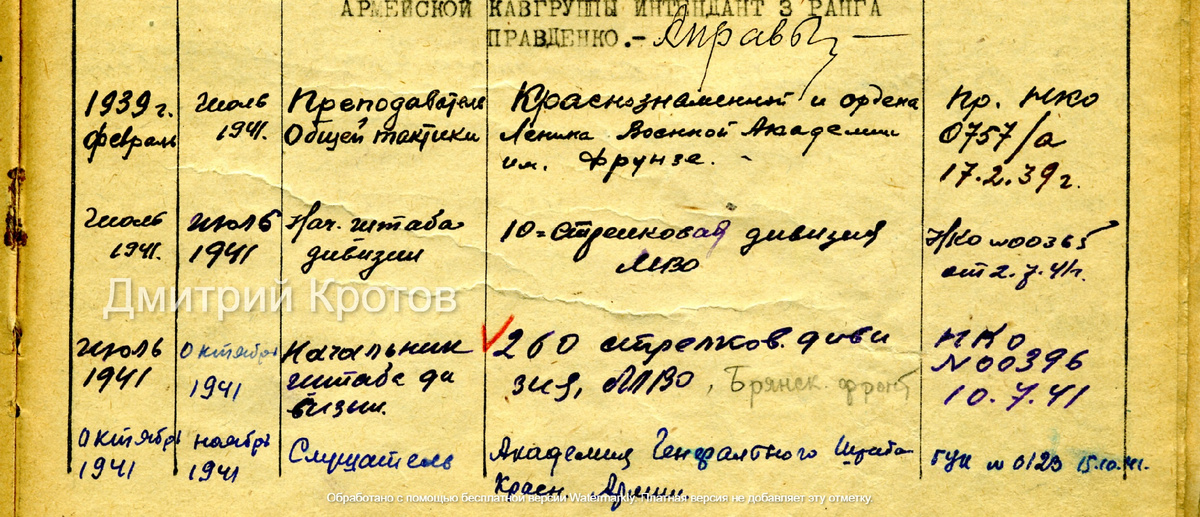 АРМЕЙСКОЙ КАВГРУППЫ ИНТЕНДАНТ 3 РАНГА
ПРАВДЕНКО.-
1939 г. июль Преподаватель Краснознаменной и ордена Пр. НКО
февраль 1941. Общей тактики Ленина Военной Академии 0757/а
им. Фрунзе. 17.2.39 г.
Июль июль Нач. штаба 10-стрелковая дивизия НКО №00365
1941. 1941 дивизии МВО от 2.7.41г.
Дмитрий Кротов
июль октябрь Начальник 260 стрелков. диви НКО
1941 1941 штаба ди зия, МВО, Брянск. фронт №00396
визии. 10.7.41
октябрь ноябрь Слушатель Академия Генерального Штаба ГУК № 0123 15.10.41.
1941 1941 Красн. Армии
Обработано с помощью бесплатной версии Watermarkly. Платная версия не добавляет эту отметку.